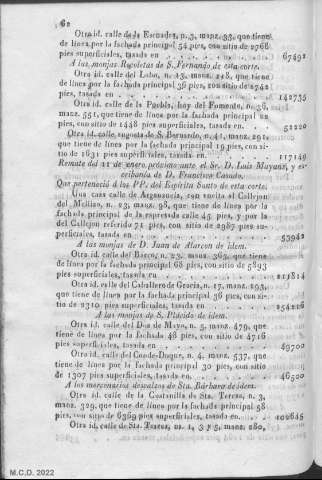 62
Otra id. calle de la Escuadra, n. 3, manz. 33, que tiene
de línea por la fachada principal 54 pies, con sitio de 2768
pies superficiales, tasada en . . . 67491
A las monjas Recoletas de S. Fernando de esta corte.
Otra id. calle del Lobo, n. 13, manz. 218, que tiene
de línea por la fachada principal 36 pies, con sitio de
pies, tasada en . . . 142735
Otra id. calle de la Puebla, hoy del Fomento, n. 36,
manz. 551, que tiene de línea por la fachada principal
pies, con sitio de 1448 pies superficiales, tasada en. . . 51220
Otra id. calle angosta de S. Bernardo, n. 41, manz. 291,
que tiene de línea por la fachada principal 19 pies, con si-
tio de 1631 pies superficiales, tasada en. . . . 117149
Remate del 11 de enero próximo ante el Sr. D. Luis Mayans, y es-
cribanía de D. Francisco Casado.
Que perteneció á los PP. del Espíritu Santo de esta corte.
Una casa calle de Arganzuela, con vuelta al Callejon
del Mellizo, n. 23, manz. 98, que tiene de línea por la
fachada principal de la espresada calle 45 pies, y por la
del Callejon referido 71 pies, con sitio de 2987 pies su-
perficiales, tasada en. . . . 53942
A las monjas de D. Juan de Alarcon de idem.
Otra id. calle del Barco, n. 23, manz. 363, que tiene
de línea por la fachada principal 68 pies, con sitio de 5893
pies superficiales, tasada en . . . 211814
Otra id. calle del Caballero de Gracia, n. 17, manz. 293,
que tiene de línea por la fachada principal 36 pies, con si-
tio de 2310 pies superficiales, tasada en . . . 154226
A las monjas de S. Plácido de idem.
Otra id. calle del Dos de Mayo, n. 5, manz. 479, que
tiene de línea por la fachada 48 pies, con sitio de 4716
pies superficiales, tasada en. . . . 49700
Otra id. calle del Conde-Duque, n. 4, manz. 537, que
tiene de línea por la fachada principal 30 pies, con sitio
de 1307 pies superficiales, tasada en . . . 46300
A los mercenarios descalzos de Sta. Bárbara de idem.
Otra id. calle de la Costanilla de Sta. Teresa, n. 3,
manz. 329, que tiene de línea por la fachada principal 98
pies, con sitio de 6369 pies superficiales, tasada en. . . 102645
Otra id. calle de Sta. Teresa, ns. 1, 3 y 5, manz. 280,
M.C.D. 2022